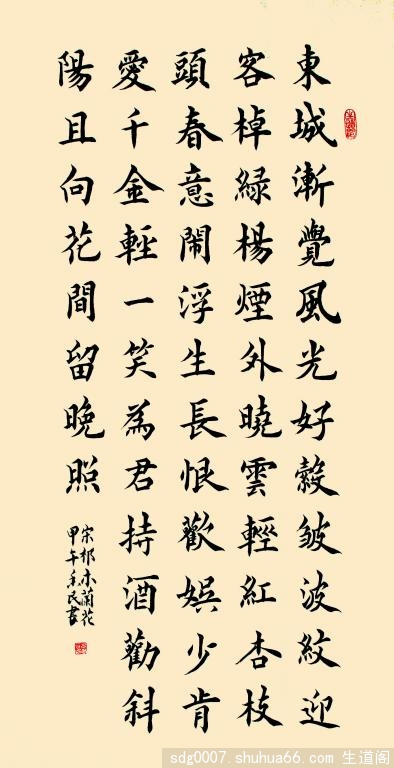 東城漸覺風光好縠皺波紋迎
客棹綠楊煙外曉雲輕紅杏枝
頭春意鬧浮生長恨歡娛少肯
愛千金輕一笑為君持酒勸斜
陽且向花間留晚照
宋祁木蘭花
甲午民書
sdg0007.shuhua66.com 生道阁